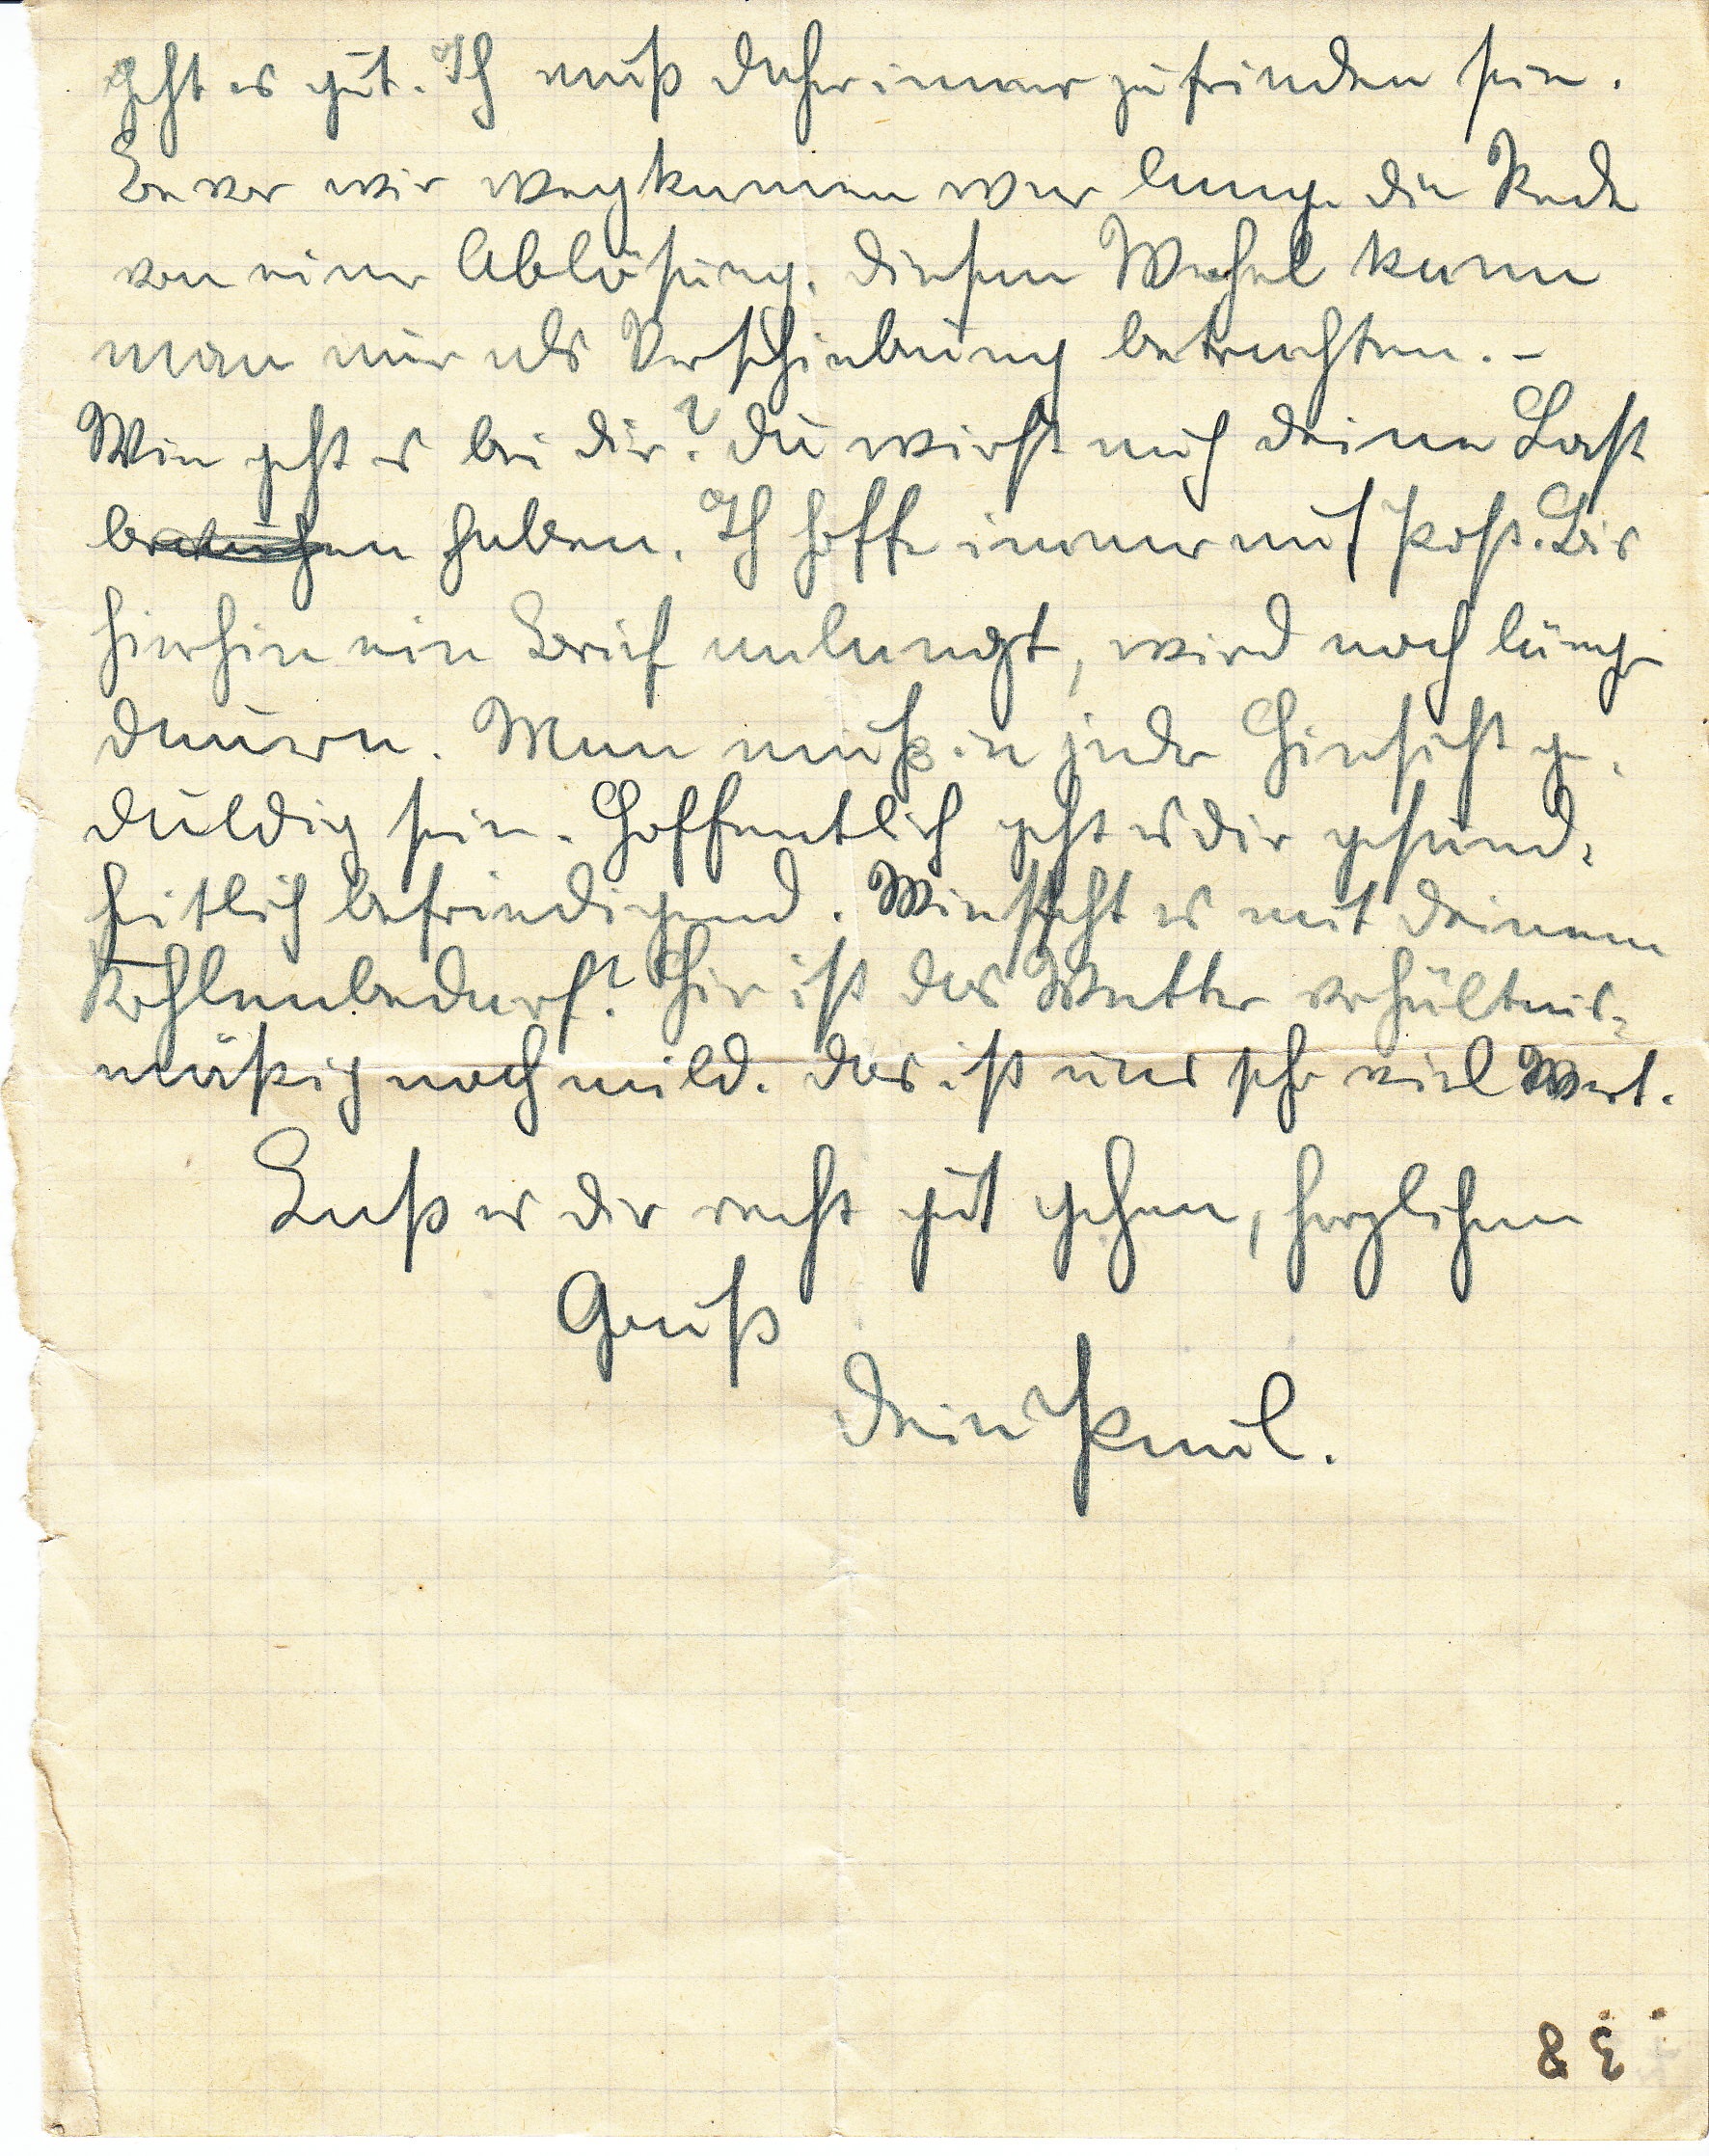 geht es gut. Ich muß daher immer zufrieden sein.
Bevor wir wegkamen war lange die Rede
von einer Ablösung. Diesen Wechsel kann
man nur als Verschiebung betrachten. –
Wie geht es bei dir? Du wirst auch deine Last
haben. Ich hoffe immer auf Post. Bis
hierhin ein Brief anlangt, wird noch lange
dauern. Man muß in jeder Hinsicht ge-
duldig sein. Hoffentlich geht es dir gesund-
heitlich befriedigend. Wie steht es mit deinem
Kohlenbedarf? Hier ist das Wetter verhältnis-
mäßig noch mild. Das ist uns sehr viel Wert.
Laß es dir recht gut gehen, herzlichen
Gruß
Dein Paul.